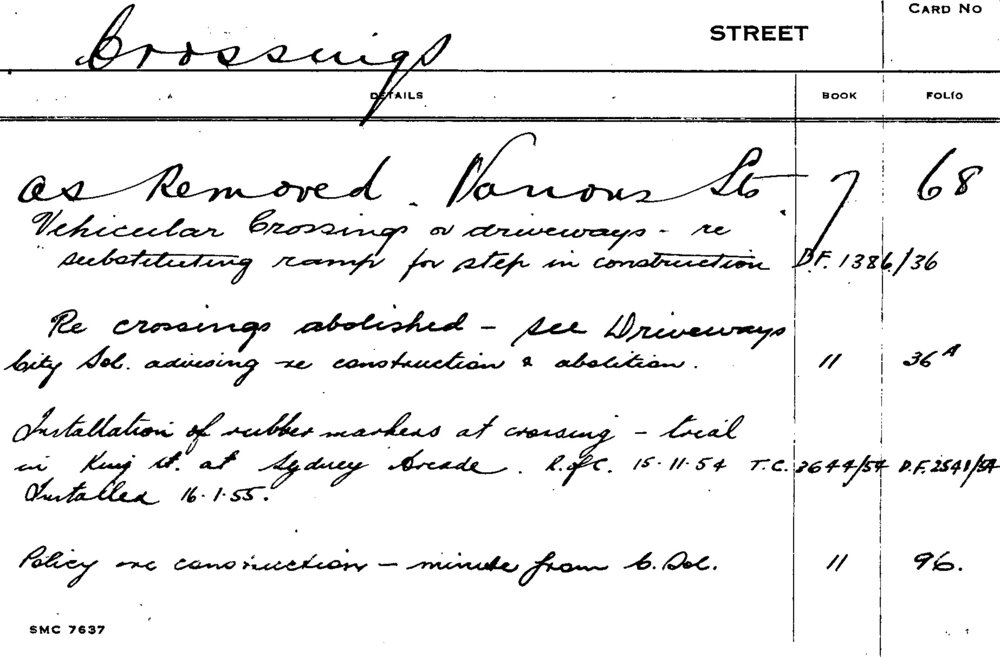 Crossings STREET CARD NO
DETAILS BOOK FOLIO
as Removed. Various Sts 7 68
Vehicular Crossings or driveways - re
substituting ramp for step in construction D.F. 1386/36
Re crossings abolished - see Driveways
City Sol. advising re construction & abolition. 11 36A
Installation of rubber markers at crossing - trial
in King St. at Sydney Arcade. R.of C. 15.11.54 T.C. 3644/54 D.F. 2541/54
Installed 16.1.55.
Policy re construction - minute from C. Sol. 11 96.
SMC 7637